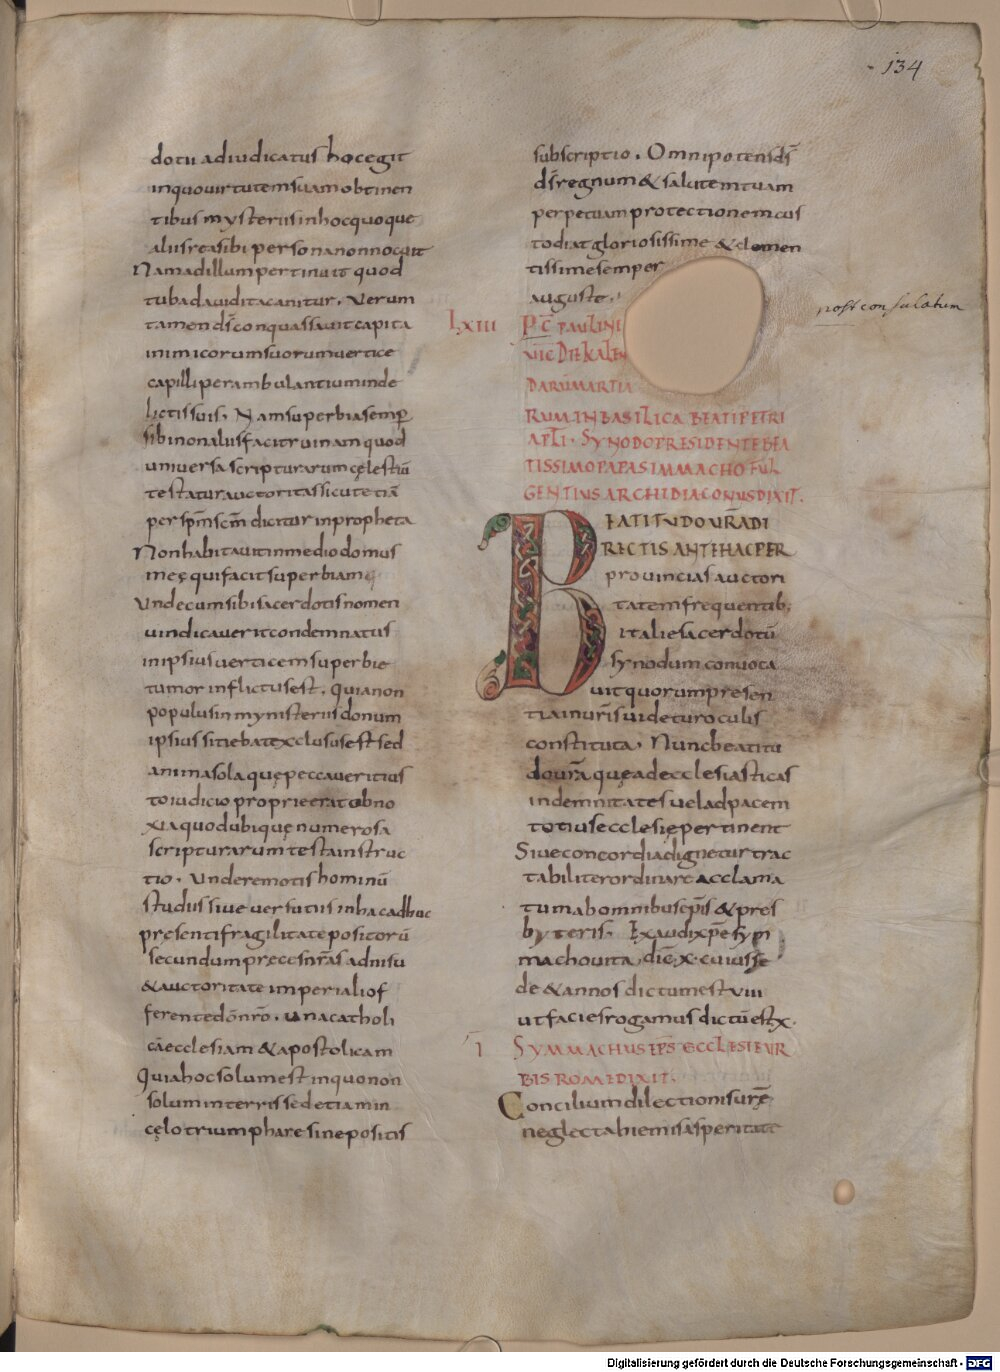 134
dotu adiudicatus hocegit
inquouirtutemsuamobtinen
tibus mysteriisinhocquoque
aliisreasibi personanonnocuit
Namadillumpertinuit quod
tubadauiditacanitur. Verum
tamen ds̄ conquassauit capita
inimicorumsuorumuertice
capilliperambulantiuminde
lictissuis. Namsuperbiasemp̄
sibinonaliisfacitruinamquod
uniuersascripturarumcęlestiū
testaturauctoritassicutetiā
perspm̄scm̄ dicitur inpropheta
Nonhabitauitinmediodomus
meę quifacitsuperbiam
Undecumsibisacerdotisnomen
uindicaueritcondemnatus
inipsiusuerticemsuperbie
tumor inflictusest. Quianon
populusin mynisteriisdonum
ipsiussitiebatexclususestsed
animasolaquępeccaueritius
toiudicio proprieeratobno
xiaquodubiquęnumerosa
scripturarumtestainstruc
tio. Underemotishominū
studiissiueuersutiisinhacadhuc
pręsentifragilitatepositorū
secundumprecesnr̄asadnisu
&auctoritateimperialiof
ferentedōnro. unacatholi
cāecclesiam &apostolicam
Quiahocsolumestinquonon
soluminterrissedetiamin
cęlotriumpharesinepositis
subscriptio. Omnipotensds̄
ds̄regnum&salutemtuam
perpetuamprotectionemcus
todiatgloriosissime &clemen
tissimesemper
auguste.
post consulatum
LXIII P̄C̄ PAULINI
VIC̄ DIEKALEN
DARŪMARTIA
RUM.INBASILICA BEATIPETRI
APLI. SYNODOPRESIDENTEBEA
TISSIMOPAPASIMMACHO FUL
GENTIUSARCHIDIACONUSDIXIT.
BEATITUDOUR̄ADI
RECTIS ANTEHACPER
prouinciasauctori
tatemfrequentib;
italiesacerdotū
synodumconuoca
uitquorumpresen
tiainuris̄uideturoculis
constituta. Nuncbeatitu
dour̄aquęadecclesiasticas
indemnitatesueladpacem
totiusecclesiępertinent
Siueconcordiadigneturtrac
tabiliterordinareacclama
tumabomnibusep̄is&pres
byteris. Exaudixpesym
machouita, dic̄.x.cuiusse
de&annosdictumestviii
utfaciesrogamusdictūestx.
I SYMMACHUSEPS̄ECCLESIEUR
BISROMEDIXIT.
Conciliumdilectionisur̄ę
neglectahiemisasperitate
Digitalisierung gefördert durch die Deutsche Forschungsgemeinschaft - DFG